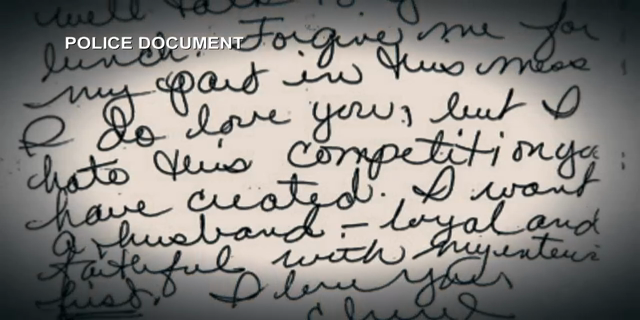 well talk
POLICE DOCUMENT
lunch. Forgive me for
my part in this mess
I do love you, but I
hate this competition yo
have created. I want
a husband - loyal and
faithful with
first. I love you,